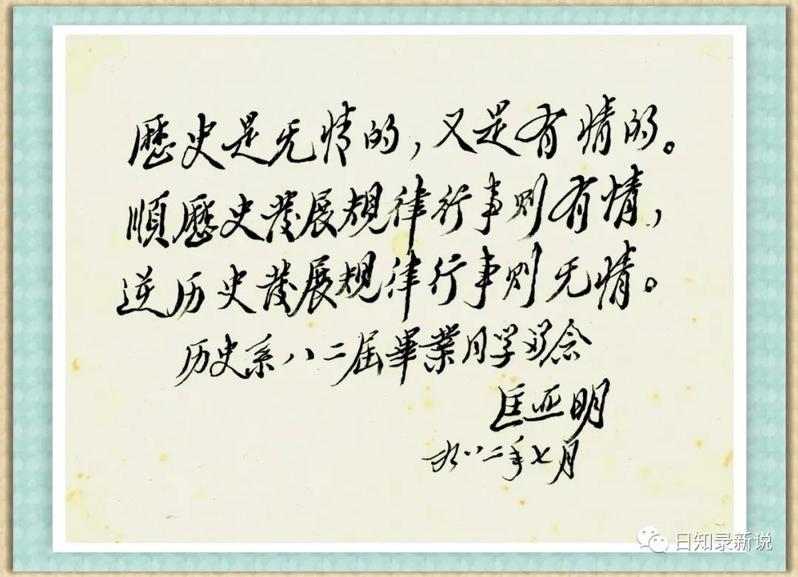 歷史是无情的，又是有情的。
順歷史發展规律行事则有情，
逆历史發展规律行事则无情。
历史系八二届畢業同学留念
匡亚明
一九八二年七月
日知录新说